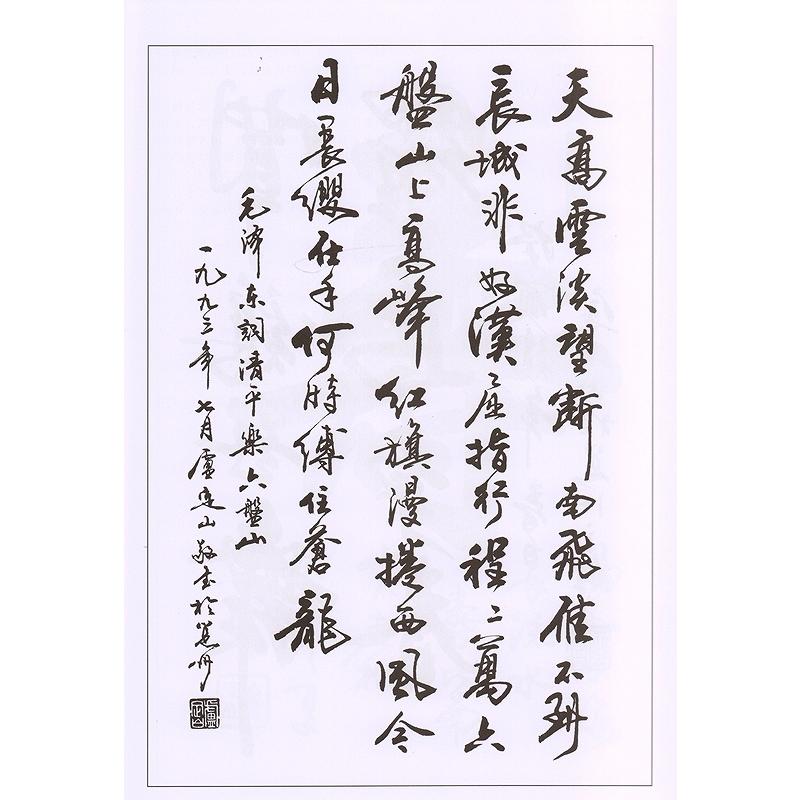 天高雲淡望斷南飛雁不到
長城非好漢屈指行程二萬六
盤山上高峰红旗漫捲西風今
日長纓在手何時縛住蒼龍
毛泽东詞清平樂六盤山
一九九三年七月盧山敬書於州